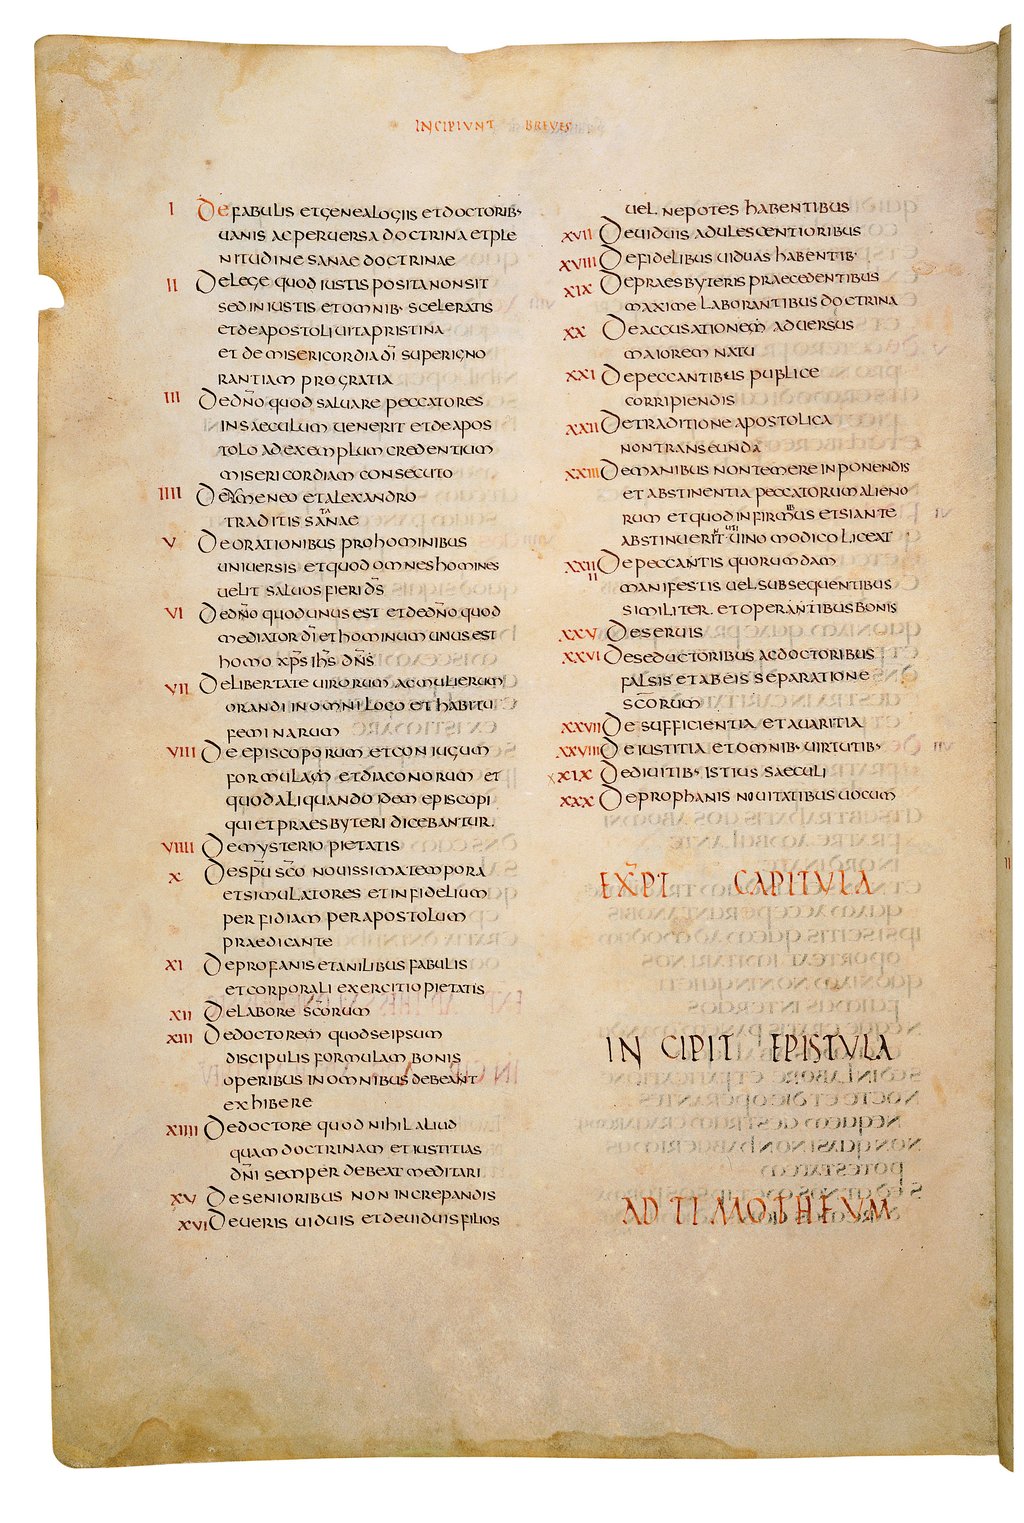 INCIPIUNT BREVES
I De fabulis et genealogiis et doctorib·
uanis ac peruersa doctrina et ple
nitudine sanae doctrinae
II De lege quod iustis posita non sit
sed iniustis et omnib· sceleratis
et de apostoli uita pristina
et de misericordia dī super igno
rantiam pro gratia
III De dn̄o quod saluare peccatores
in saeculum uenerit et de apos
tolo ad exemplum credentium
misericordiam consecuto
IIII De ymeneo et alexandro
traditis satanae
V De orationibus pro hominibus
uniuersis et quod omnes homines
uelit saluos fieri ds̄
VI De dn̄o quod unus est et de dn̄o quod
mediator dī et hominum unus est
homo xp̄s ih̄s dn̄s
VII De libertate uirorum ac mulierum
orandi in omni loco et habitu
feminarum
VIII De episcoporum et coniugum
formulam et diaconorum et
quod aliquando idem episcopi
qui et praesbyteri dicebantur.
VIIII De mysterio pietatis
X De sp̄u sc̄o nouissima tempora
et simulatores et infidelium
perfidiam per apostolum
praedicante
XI De profanis et anilibus fabulis
et corporali exercitio pietatis
XII De labore sc̄orum
XIII De doctorem quod se ipsum
discipulis formulam bonis
operibus in omnibus debeant
exhibere
XIIII De doctore quod nihil aliud
quam doctrinam et iustitias
dn̄i semper debeat meditari
XV De senioribus non increpandis
XVI De ueris uiduis et de uiduis filios
uel nepotes habentibus
XVII De uiduis adulescentioribus
XVIII De fidelibus uiduas habentib·
XIX De praesbyteris praecedentibus
maxime laborantibus doctrina
XX De accusationem aduersus
maiorem natu
XXI De peccantibus publice
corripiendis
XXII De traditione apostolica
non transeunda
XXIII De manibus non temere inponendis
et abstinentia peccatorum alieno
rum et quod infirmus et si ante
abstinuerit uino modico liceat
XXIIII De peccantis quorumdam
manifestis uel subsequentibus
similiter. et operantibus bonis
XXV De seruis
XXVI De seductoribus ac doctoribus
falsis et ab eis separatione
sc̄orum
XXVII De sufficientia et auaritia
XXVIII De iustitia et omnib· uirtutib·
XXIX De diuitib· istius saeculi
XXX De prophanis nouitatibus uocum
EXP̄T CAPITULA
INCIPIT EPISTULA
AD TIMOTHEUM